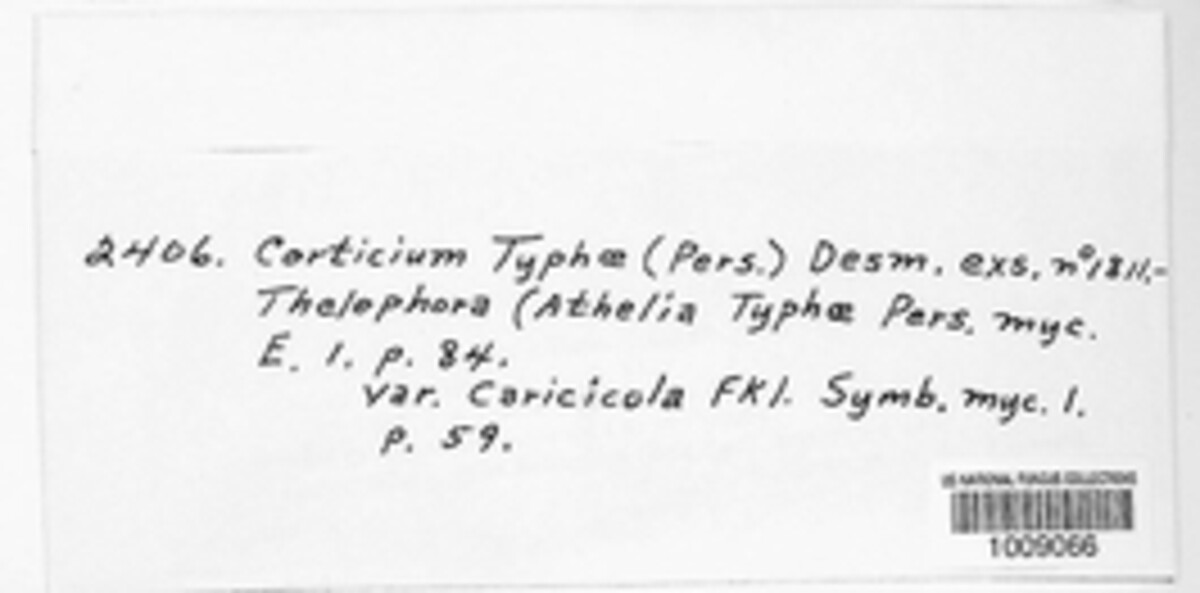 2406. Corticium Typhæ (Pers.) Desm. exs. nº 1811.-
Thelephora (Athelia Typhæ Pers. myc.
E. 1. p. 84.
var. Caricicola FKl. Symb. myc. 1.
p. 59.
US NATIONAL FUNGUS COLLECTIONS
1009066